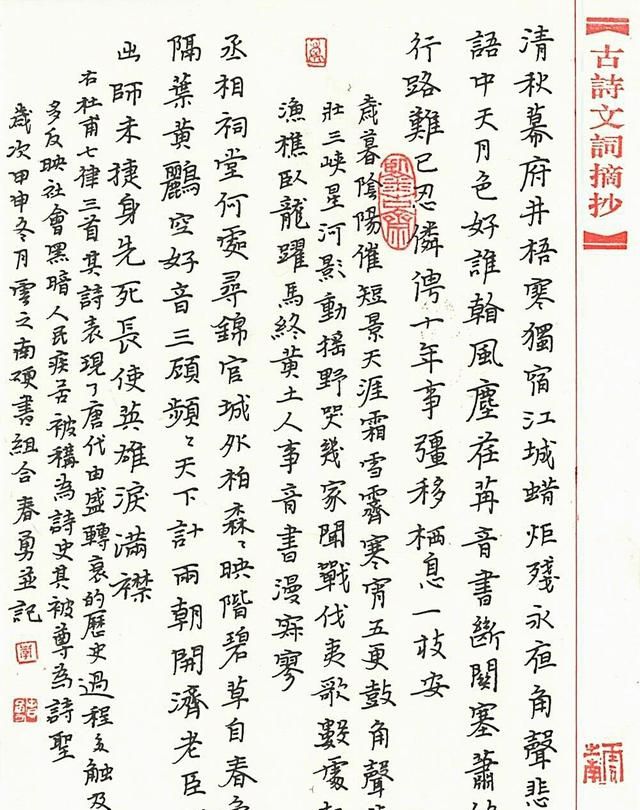 【古詩文詞摘抄】
清秋幕府井梧寒獨宿江城蜡炬殘永夜角聲悲
語中天月色好誰翰風塵荏苒音書斷關塞蕭
行路難已忍憐俜十年事彊移栖息一枝安
歲暮陰陽催短景天涯霜雪霽寒宵五更鼓角聲
壯三峽星河影動搖野哭幾家聞戰伐夷歌數處
漁樵臥龍躍馬終黃土人事音書漫寂寥
丞相祠堂何處尋錦官城外柏森〻映階碧草自春
隔葉黃鸝空好音三顧頻〻天下計兩朝開濟老臣
出師未捷身先死長使英雄淚滿襟
右杜甫七律三首其詩表現了唐代由盛轉衰的歷史過程多觸及
多反映社會黑暗人民疾苦被稱為詩史其被尊為詩聖
歲次甲申冬月雲之南硬書組合春勇並記